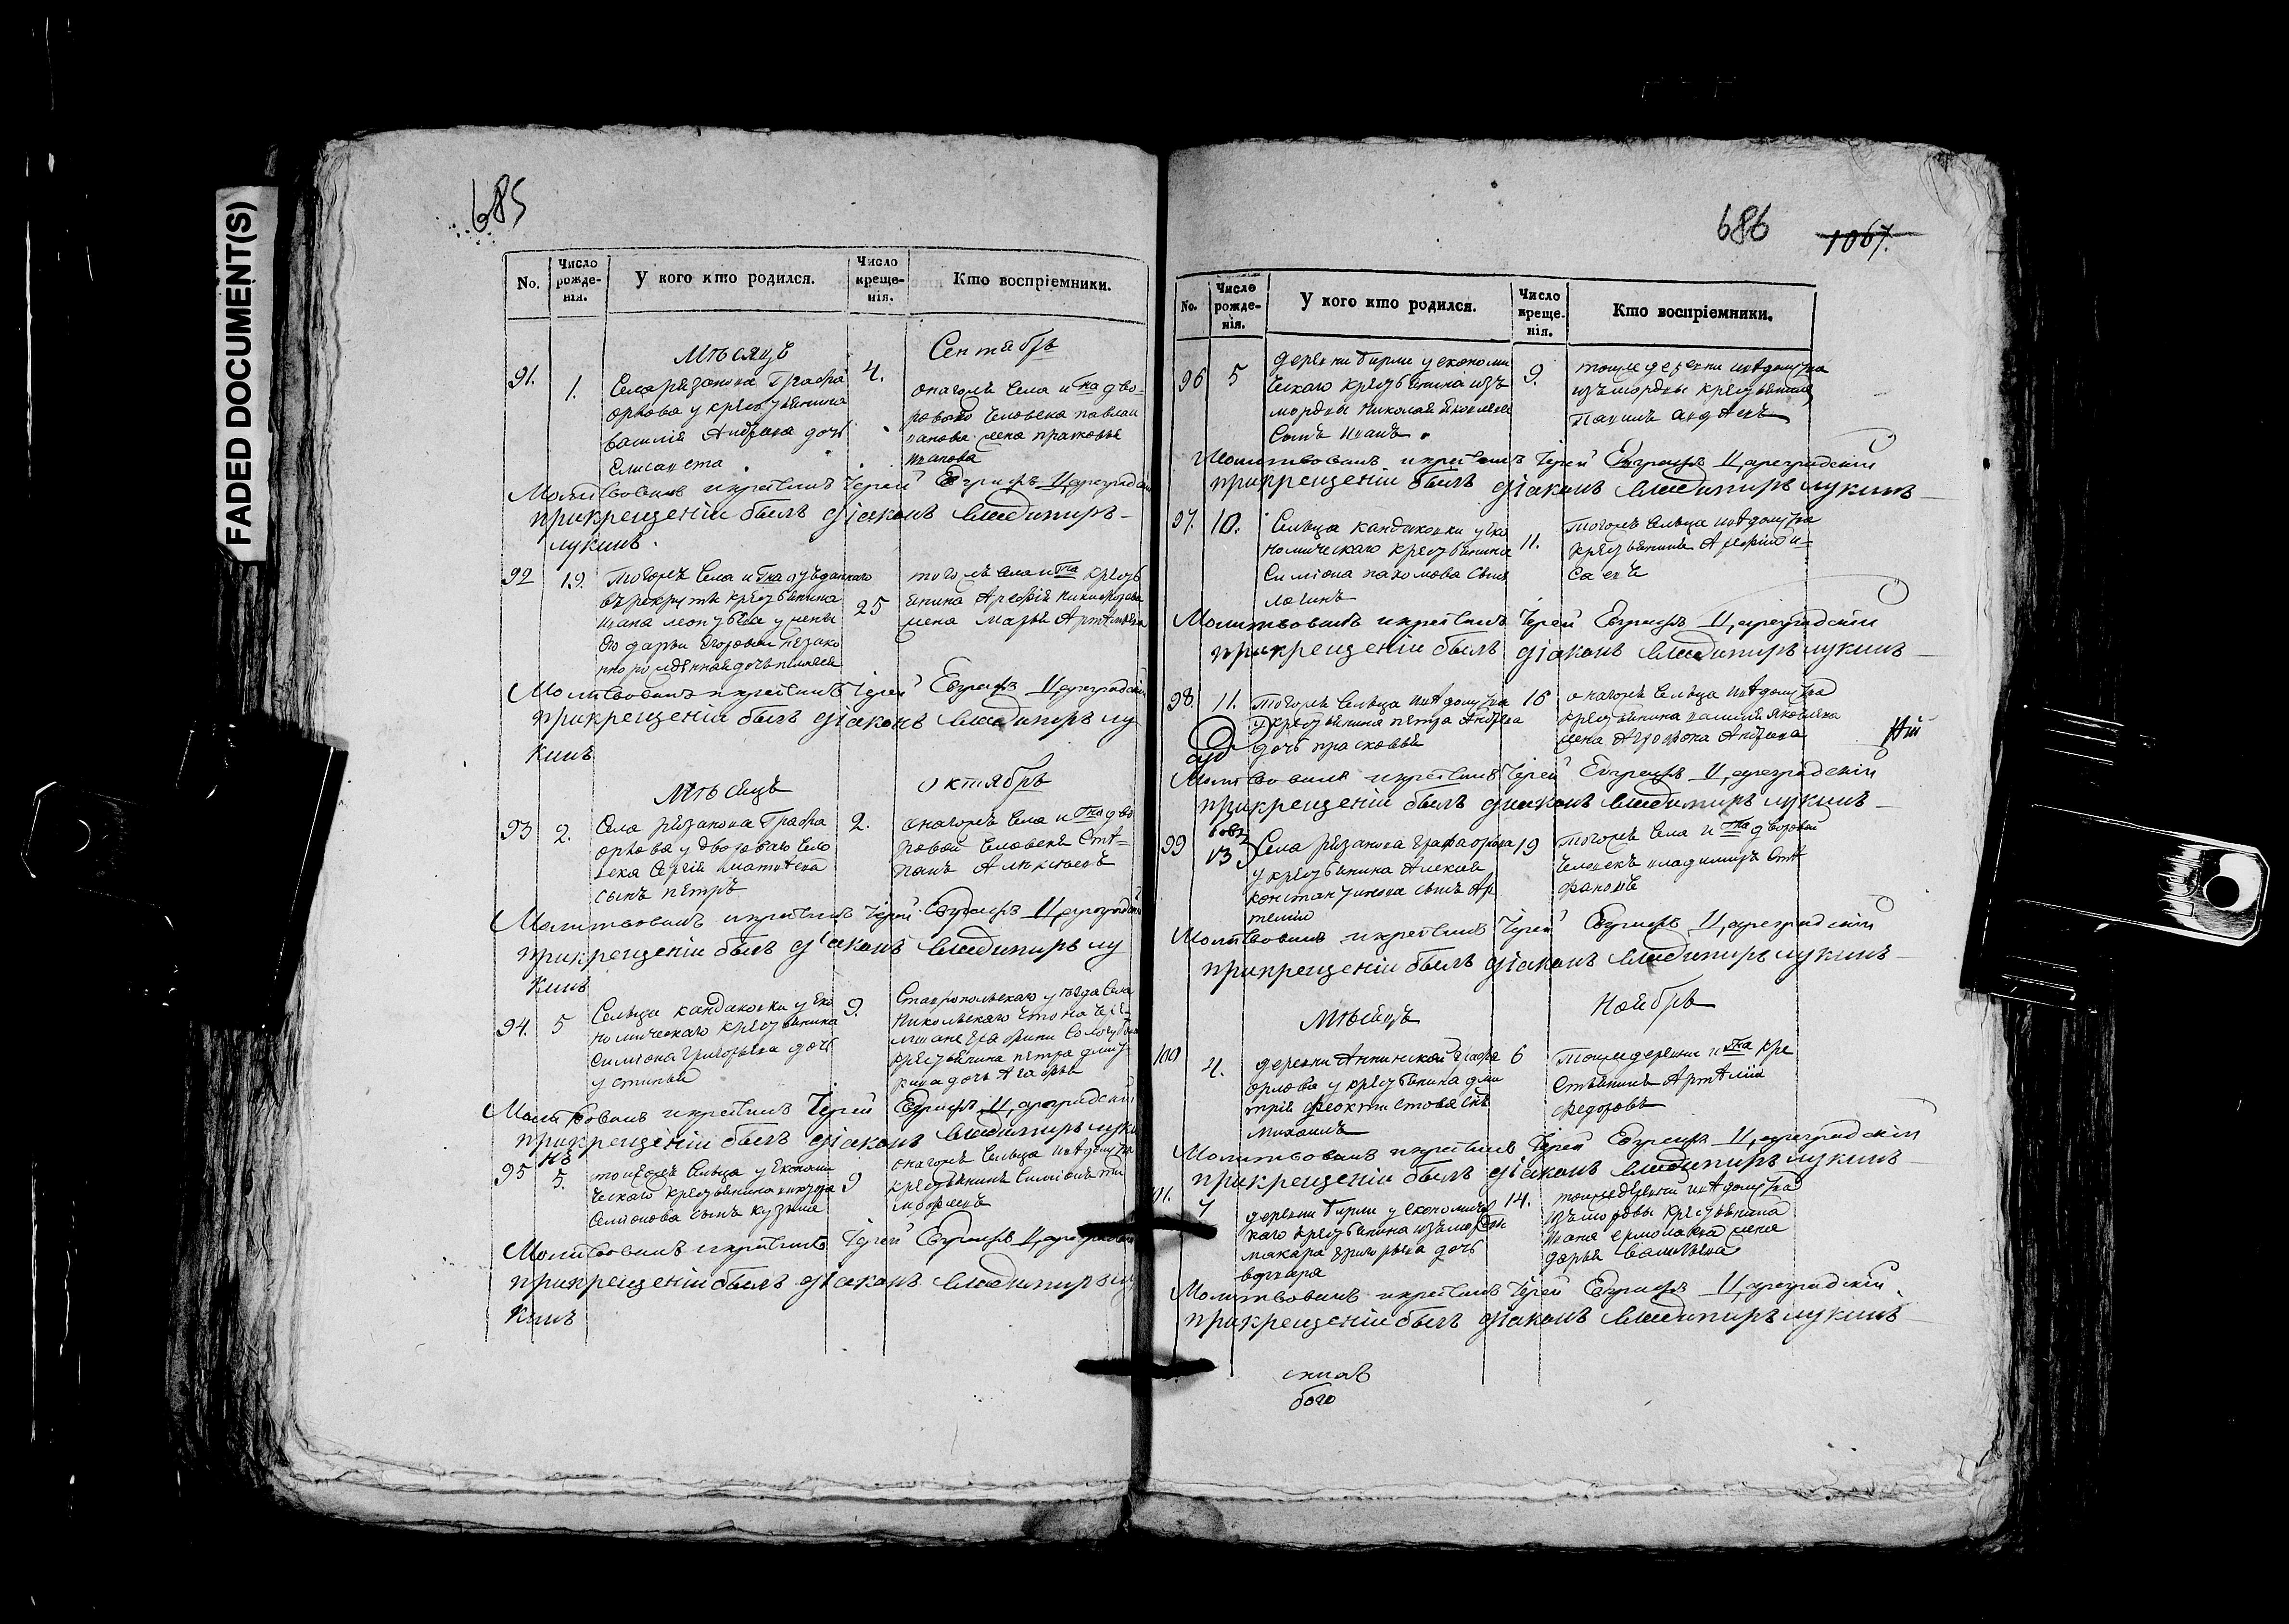 FADED DOCUMENT(S)
685
No.
Число рожде-нія.
У кого кто родился.
Число креще-нія.
Кто воспріемники.
Мѣсяцъ
Сентябрь
91.
1.
Села рязанова Графа
орлова у крестьянина
василія Андреева дочь
Елисавета
4.
онагожъ села и гна дво-
роваго человека павла
жена прасковья
иванова
Молитвовалъ и крестилъ Іерей Евграфъ Цареградскій
при крещеніи былъ діаконъ владимиръ
лукинъ.
92
19.
Тогожъ села и гна
въ рекруты крестьянина
ивана у жены
его дарьи Егоровой незако
нно рожденная дочь пелагея
25
тогожъ села и гна кресть
янина Арефія Никифорова
жена марья Артемьева
Молитвовалъ и крестилъ Іерей Евграфъ Цареградскій
при крещеніи былъ діаконъ владимиръ лу
кинъ
Мѣсяцъ
октябрь
93
2.
Села рязанова Графа
орлова у двороваго чело
века Сергія матвеева
сынъ петръ
2.
онагожъ села и гна дво
ровой человекъ Сте-
панъ Алексеевъ
Молитвовалъ и крестилъ Іерей Евграфъ Цареградскій
при крещеніи былъ діаконъ владимиръ лу
кинъ
94.
5
Сельца кандаковки у эко
номическаго крестьянина
симіона григорьева дочь
устинья
9.
Ставропольскаго уезда села
Никольскаго что на Чере-
мшане графини
крестьянина петра
дочь Агафья
Молитвовалъ и крестилъ Іерей Евграфъ Цареградскій
при крещеніи былъ діаконъ владимиръ луки
нъ
95
5.
тогожъ сельца у экономи
ческаго крестьянина
Симіонова сынъ кузьма
9
онагожъ сельца и ведомства
крестьянинъ Симіонъ ти
мофеевъ
Молитвовалъ и крестилъ Іерей Евграфъ Цареградскій
при крещеніи былъ діаконъ владимиръ лу
кинъ
686
1067.
No.
Число рожде-нія.
У кого кто родился.
Число креще-нія.
Кто воспріемники.
96
5
деревни бирли у економи
ческаго крестьянина изъ
мордвы Николая Яковлева
сынъ иванъ
9.
тоже деревни и ведомства
изъ мордвы крестьянинъ
Авдеевъ
Молитвовалъ и крестилъ Іерей Евграфъ Цареградскій
при крещеніи былъ діаконъ владимиръ лукинъ
97.
10.
Сельца кандаковки у эко
номическаго крестьянина
Симіона пахомова сынъ
логинъ
11.
тогожъ сельца и ведомства
крестьянинъ Арефій и-
саевъ
Молитвовалъ и крестилъ Іерей Евграфъ Цареградскій
при крещеніи былъ діаконъ владимиръ лукинъ
98.
11.
тогожъ сельца и ведомства
крестьянина петра Андреева
дочь прасковья
16
онагожъ сельца и ведомства
крестьянина василія яковлева
жена Агрофена Андреева
Молитвовалъ и крестилъ Іерей Евграфъ Цареградскій
при крещеніи былъ діаконъ владимиръ лукинъ
99
13
Села рязанова графа орлова
у крестьянина Алексія
константинова сынъ Ар
темій
19
тогожъ села и гна дворовой
человекъ владимиръ Сте
фановъ
Молитвовалъ и крестилъ Іерей Евграфъ Цареградскій
при крещеніи былъ діаконъ владимиръ лукинъ
Мѣсяцъ
Ноябрь
100
4.
деревни Аннинской графа
орлова у крестьянина дми
трія феоктистова снъ
михаилъ
6
тоже деревни и гна кре
стьянинъ Артемій
федоровъ
Молитвовалъ и крестилъ Іерей Евграфъ Цареградскій
при крещеніи былъ діаконъ владимиръ лукинъ
101.
7
деревни бирли у економиче
скаго крестьянина изъ мордвы
макара григорьева дочь
варвара
14.
тоже деревни и ведомства
изъ мордвы крестьянина
ивана ермолаева жена
дарья васильева
Молитвовалъ и крестилъ Іерей Евграфъ Цареградскій
при крещеніи былъ діаконъ владимиръ лукинъ